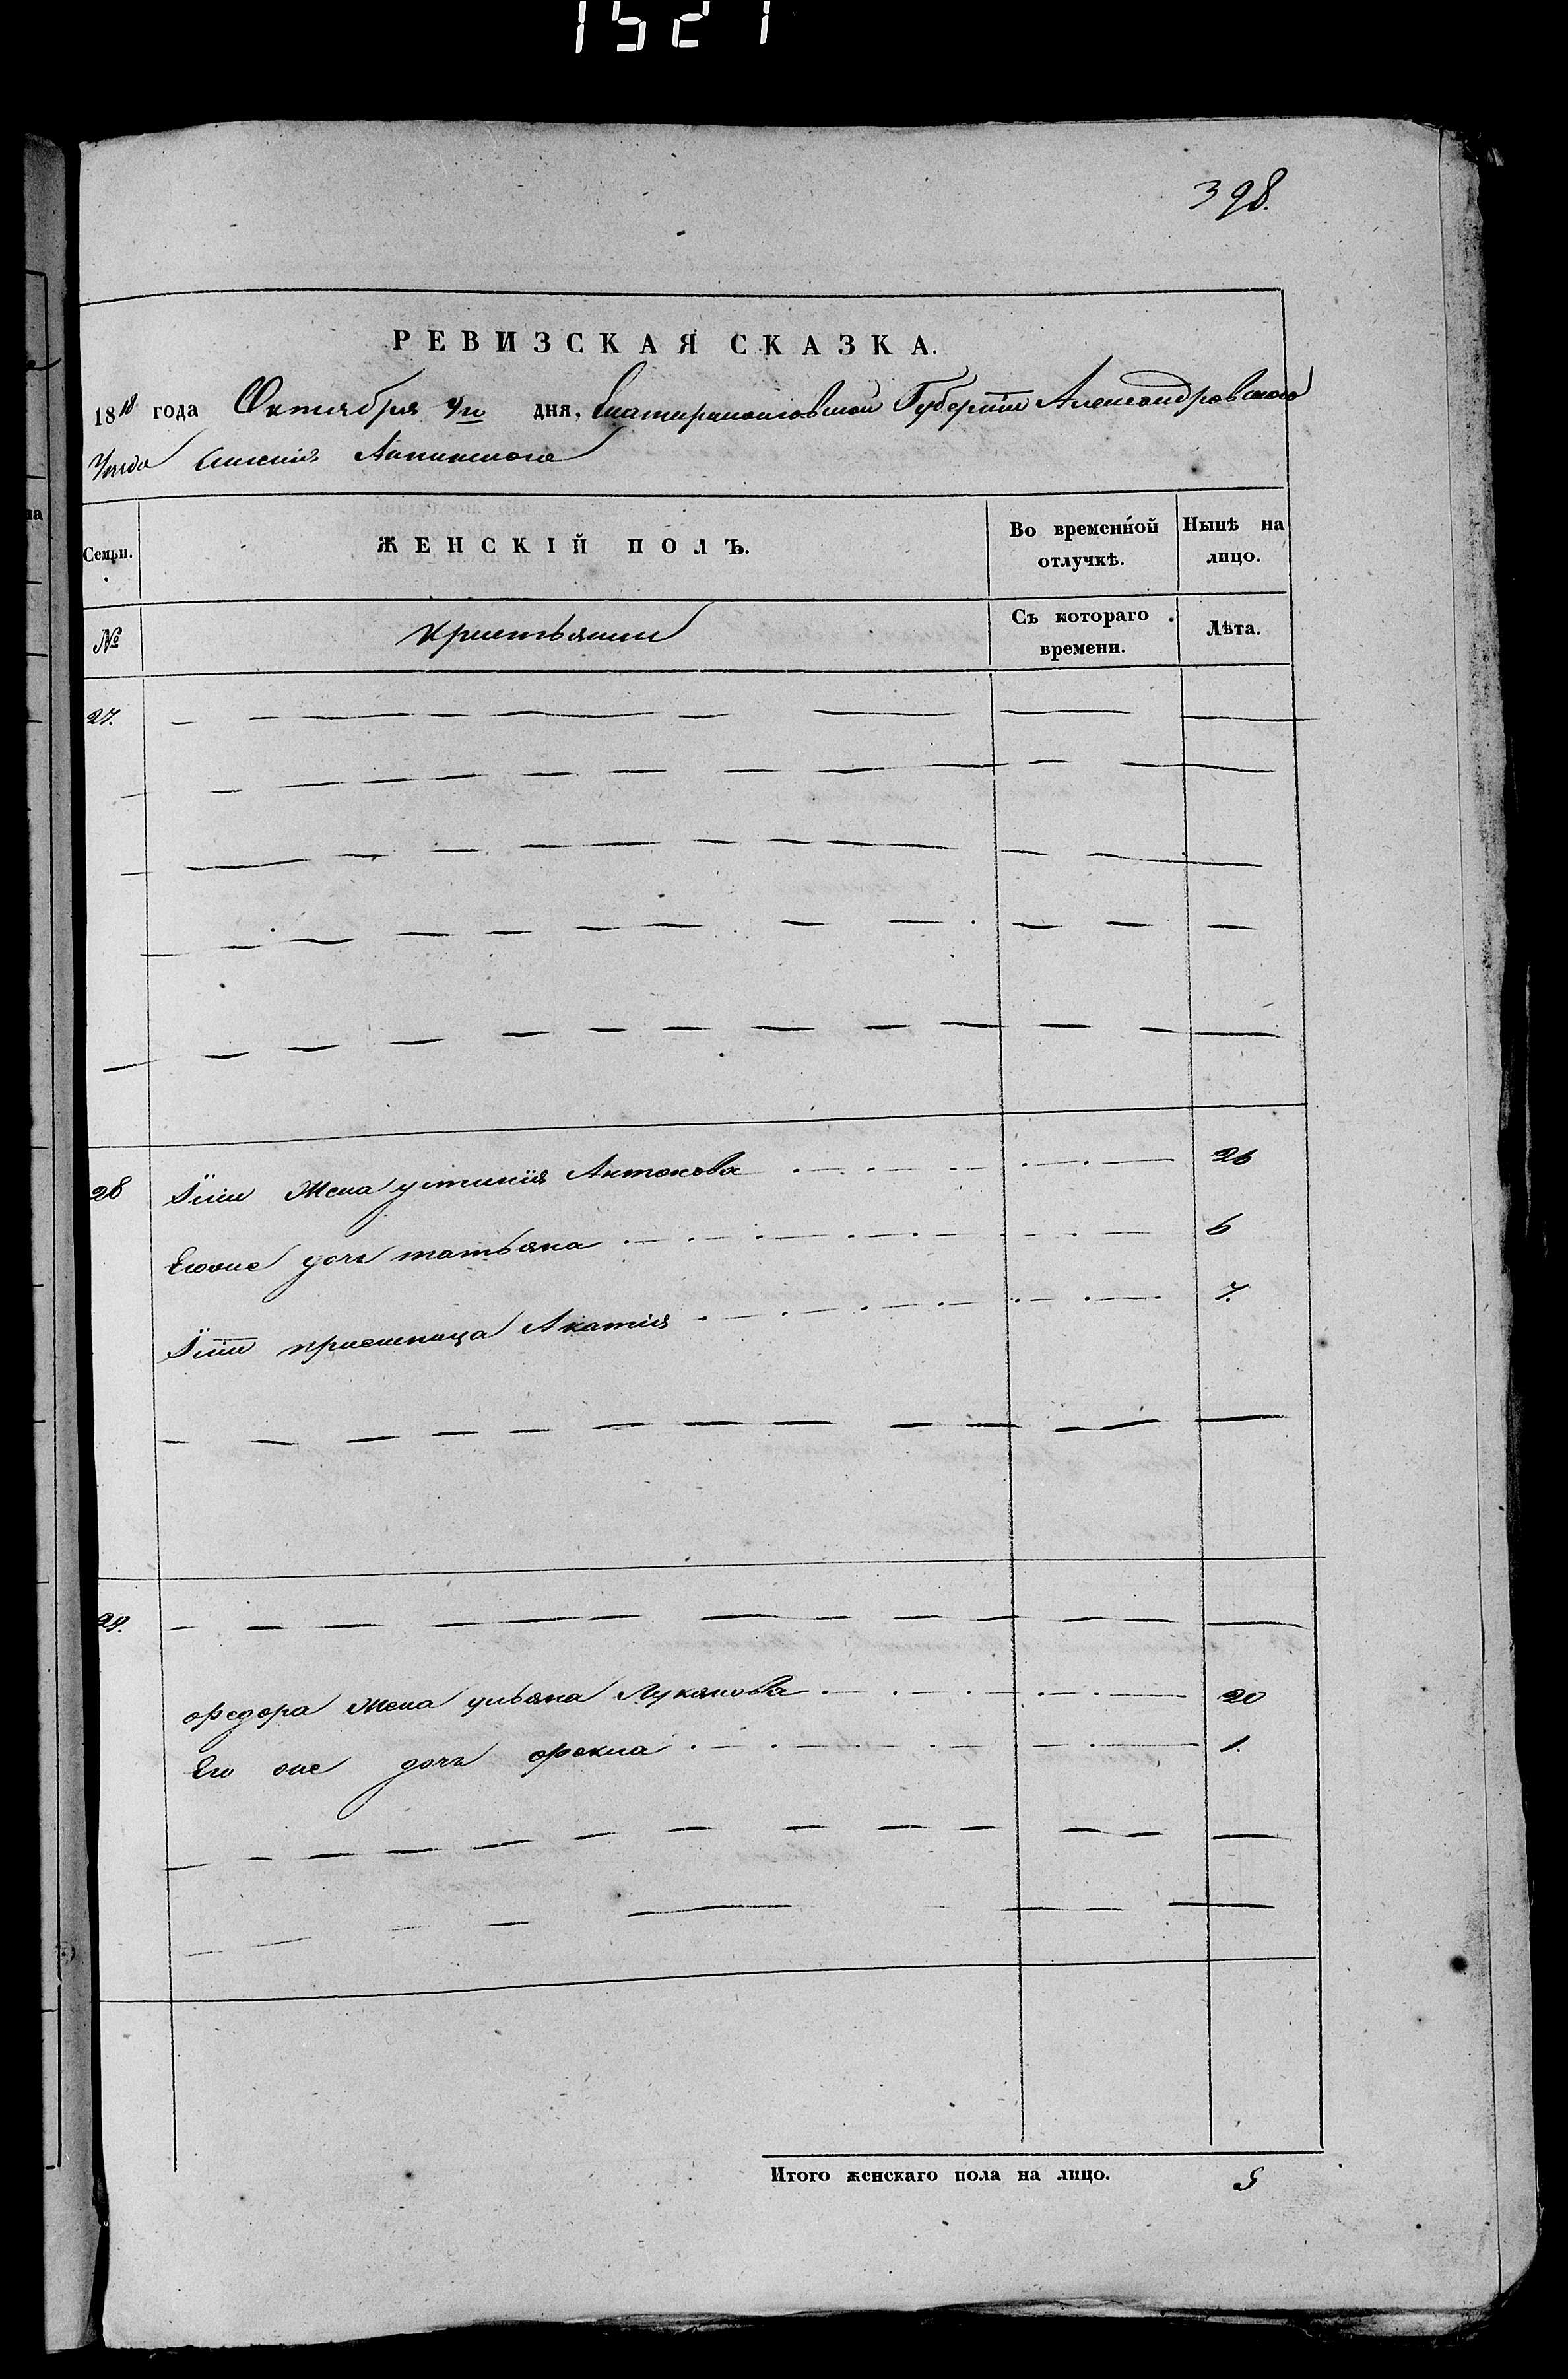 1521
398.
РЕВИЗСКАЯ СКАЗКА.
1818 года Октября дня, Екатеринославской Губернии Александровского
Уезда
Семьи. ЖЕНСКІЙ ПОЛЪ. Во временной отлучкѣ. Нынѣ на лицо.
№ Крестьянии Съ котораго времени. Лѣта.
27.
28 жена устиния Антонова 26
Егоже дочь татьяна 6
приемница Акатия 7.
29.
федора жена ульяна Лукянова 20
Его же дочь фекла 1.
Итого женскаго пола на лицо. 5